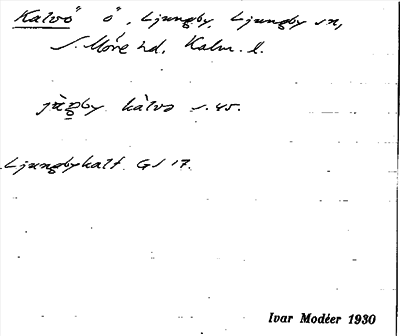 Kalvö ö, Ljungby, Ljungby sn,
S. Möre hd. Kalm. l.
kàlvə s. 45.
Ljungbyholt GS 17.
Ivar Modéer 1930